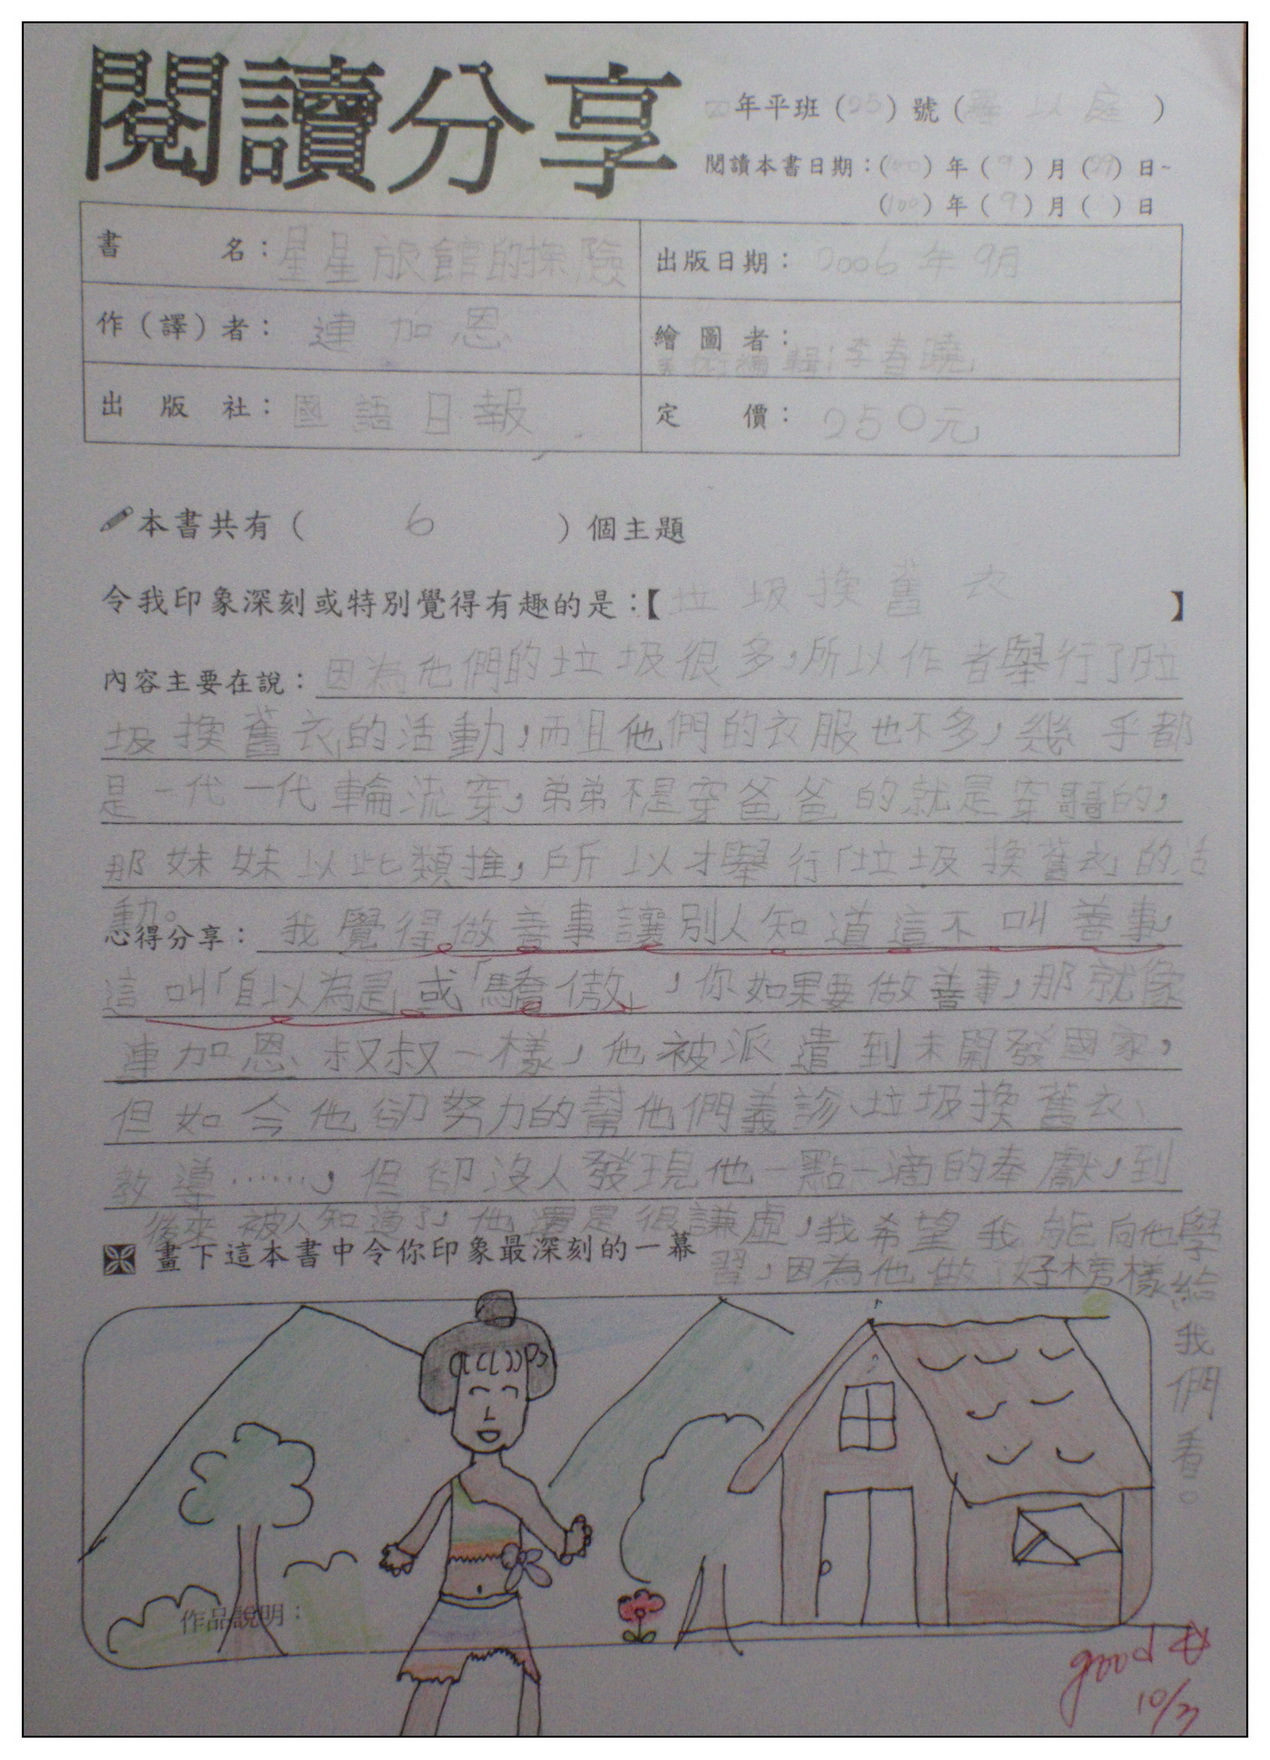 閱讀分享
四年平班(25)號( 以庭 )
閱讀本書日期:(100)年(9)月(29)日~
(100)年(9)月( )日
書名:星星旅館的探險
出版日期:2006年9月
作(譯)者:連加恩
繪圖者:
美術編輯:李春曉
出版社:國語日報
定價:250元
本書共有( 6 )個主題
令我印象深刻或特別覺得有趣的是:【垃圾換舊衣】
內容主要在說:因為他們的垃圾很多,所以作者舉行了「垃
圾換舊衣」的活動,而且他們的衣服也不多,幾乎都
是一代一代輪流穿,弟弟不是穿爸爸的就是穿哥哥的,
那妹妹以此類推,所以才舉行「垃圾換舊衣」的活
動。
心得分享:我覺得做善事讓別人知道這不叫善事,
這叫「自以為是」或「驕傲」,你如果要做善事,那就像
連加恩叔叔一樣,他被派遣到未開發國家,
但如今他卻努力的幫他們義診、垃圾換舊衣、
教導……,但卻沒人發現他一點一滴的奉獻,到
後來被人知道了,他還是很謙虛,我希望我能向他學
習,因為他做好榜樣給我們看。
畫下這本書中令你印象最深刻的一幕
作品說明:
good
10/3